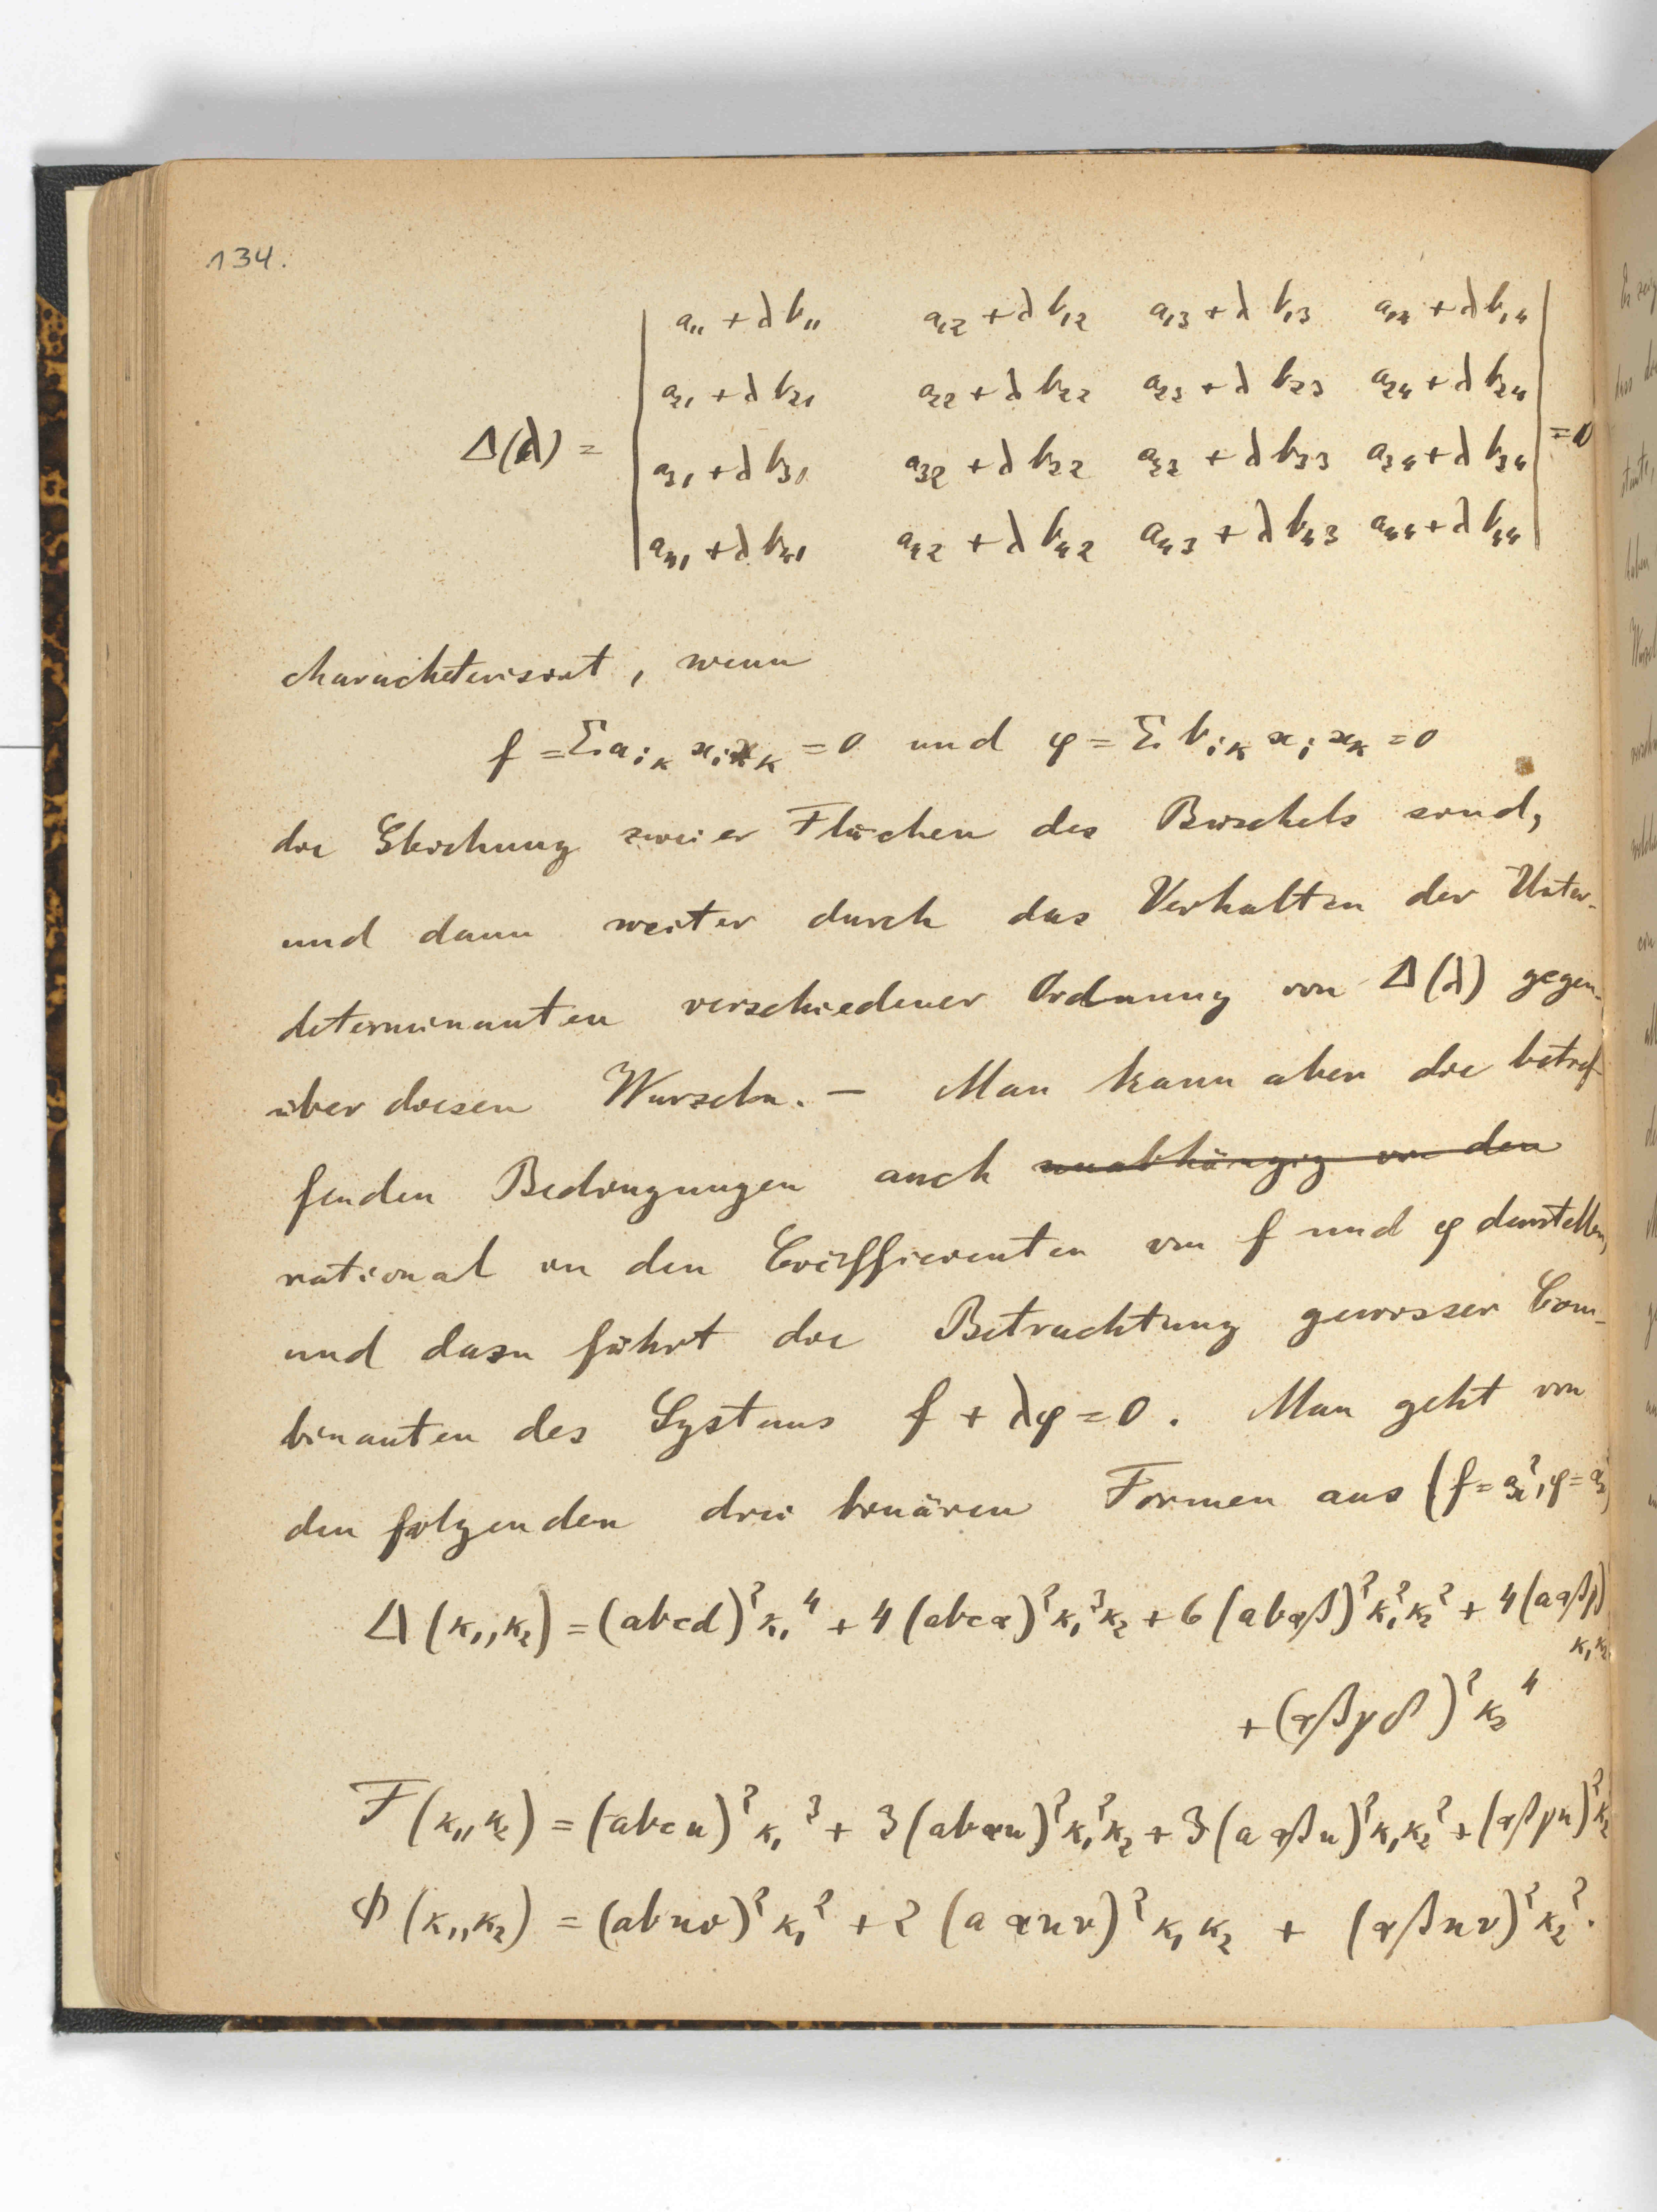 134.
a₁₁ + λb₁₁ a₁₂ + λb₁₂ a₁₃ + λb₁₃ a₁₄ + λb₁₄
a₂₁ + λb₂₁ a₂₂ + λb₂₂ a₂₃ + λb₂₃ a₂₄ + λb₂₄
Δ(λ) = = 0
a₃₁ + λb₃₁ a₃₂ + λb₃₂ a₃₃ + λb₃₃ a₃₄ + λb₃₄
a₄₁ + λb₄₁ a₄₂ + λb₄₂ a₄₃ + λb₄₃ a₄₄ + λb₄₄
charackterisirt, wenn
f = Σaᵢₖ xᵢxₖ = 0 und φ = Σ bᵢₖ xᵢ xₖ = 0
die Gleichung zweier Flächen des Büschels sind,
und dann weiter durch das Verhalten der Unter-
determinanten verschiedener Ordnung von Δ(λ) gegen-
über diesen Wurzeln. — Man kann aber die betref-
fenden Bedingungen auch unabhängig von den
rational in den Coëfficienten von f und φ darstellen,
und dazu führt die Betrachtung gewisser Com-
binanten des Systems f + λφ = 0. Man geht von
den folgenden drei binären Formen aus (f = aₓ², φ = αₓ²)
Δ(κ₁,κ₂) = (abcd)²κ₁⁴ + 4(abcα)²κ₁³κ₂ + 6(abαβ)²κ₁²κ₂² + 4(aαβγ)
κ₁κ₂
+ (αβγδ)²κ₂⁴
F(κ₁,κ₂) = (abcu)²κ₁³ + 3(abαu)²κ₁²κ₂ + 3(aαβu)²κ₁κ₂² + (αβγu)²κ₂
Φ(κ₁,κ₂) = (abuv)²κ₁² + 2(aαuv)²κ₁κ₂ + (αβuv)²κ₂².